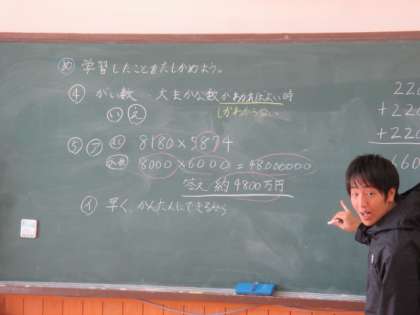 め 学習したことをたしかめよう。
④ がい数 大まかな数がわかればよい時
しかわからない
い え
⑤ ア 8180×5874
8000×6000=48000000
答え 約4800万円
イ 早く、かんたんにできるから
220
220
+220
660